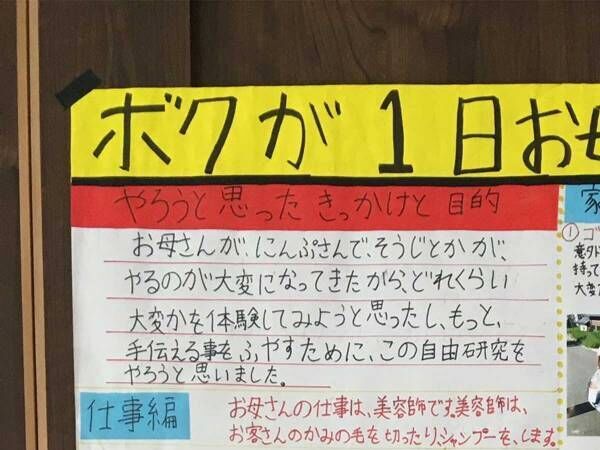 ボクが1日お
やろうと思ったきっかけと目的
お母さんが、にんぷさんで、そうじとかが、
やるのが大変になってきたがら、どれくらい
大変かを体験してみようと思ったし、もっと、
手伝える事をふやすために、この自由研究を
やろうと思いました。
仕事編
お母さんの仕事は、美容師です。美容師は、
お客さんのかみの毛を切ったり、シャンプーを、します。
家
①ゴ
意外
持って
大変